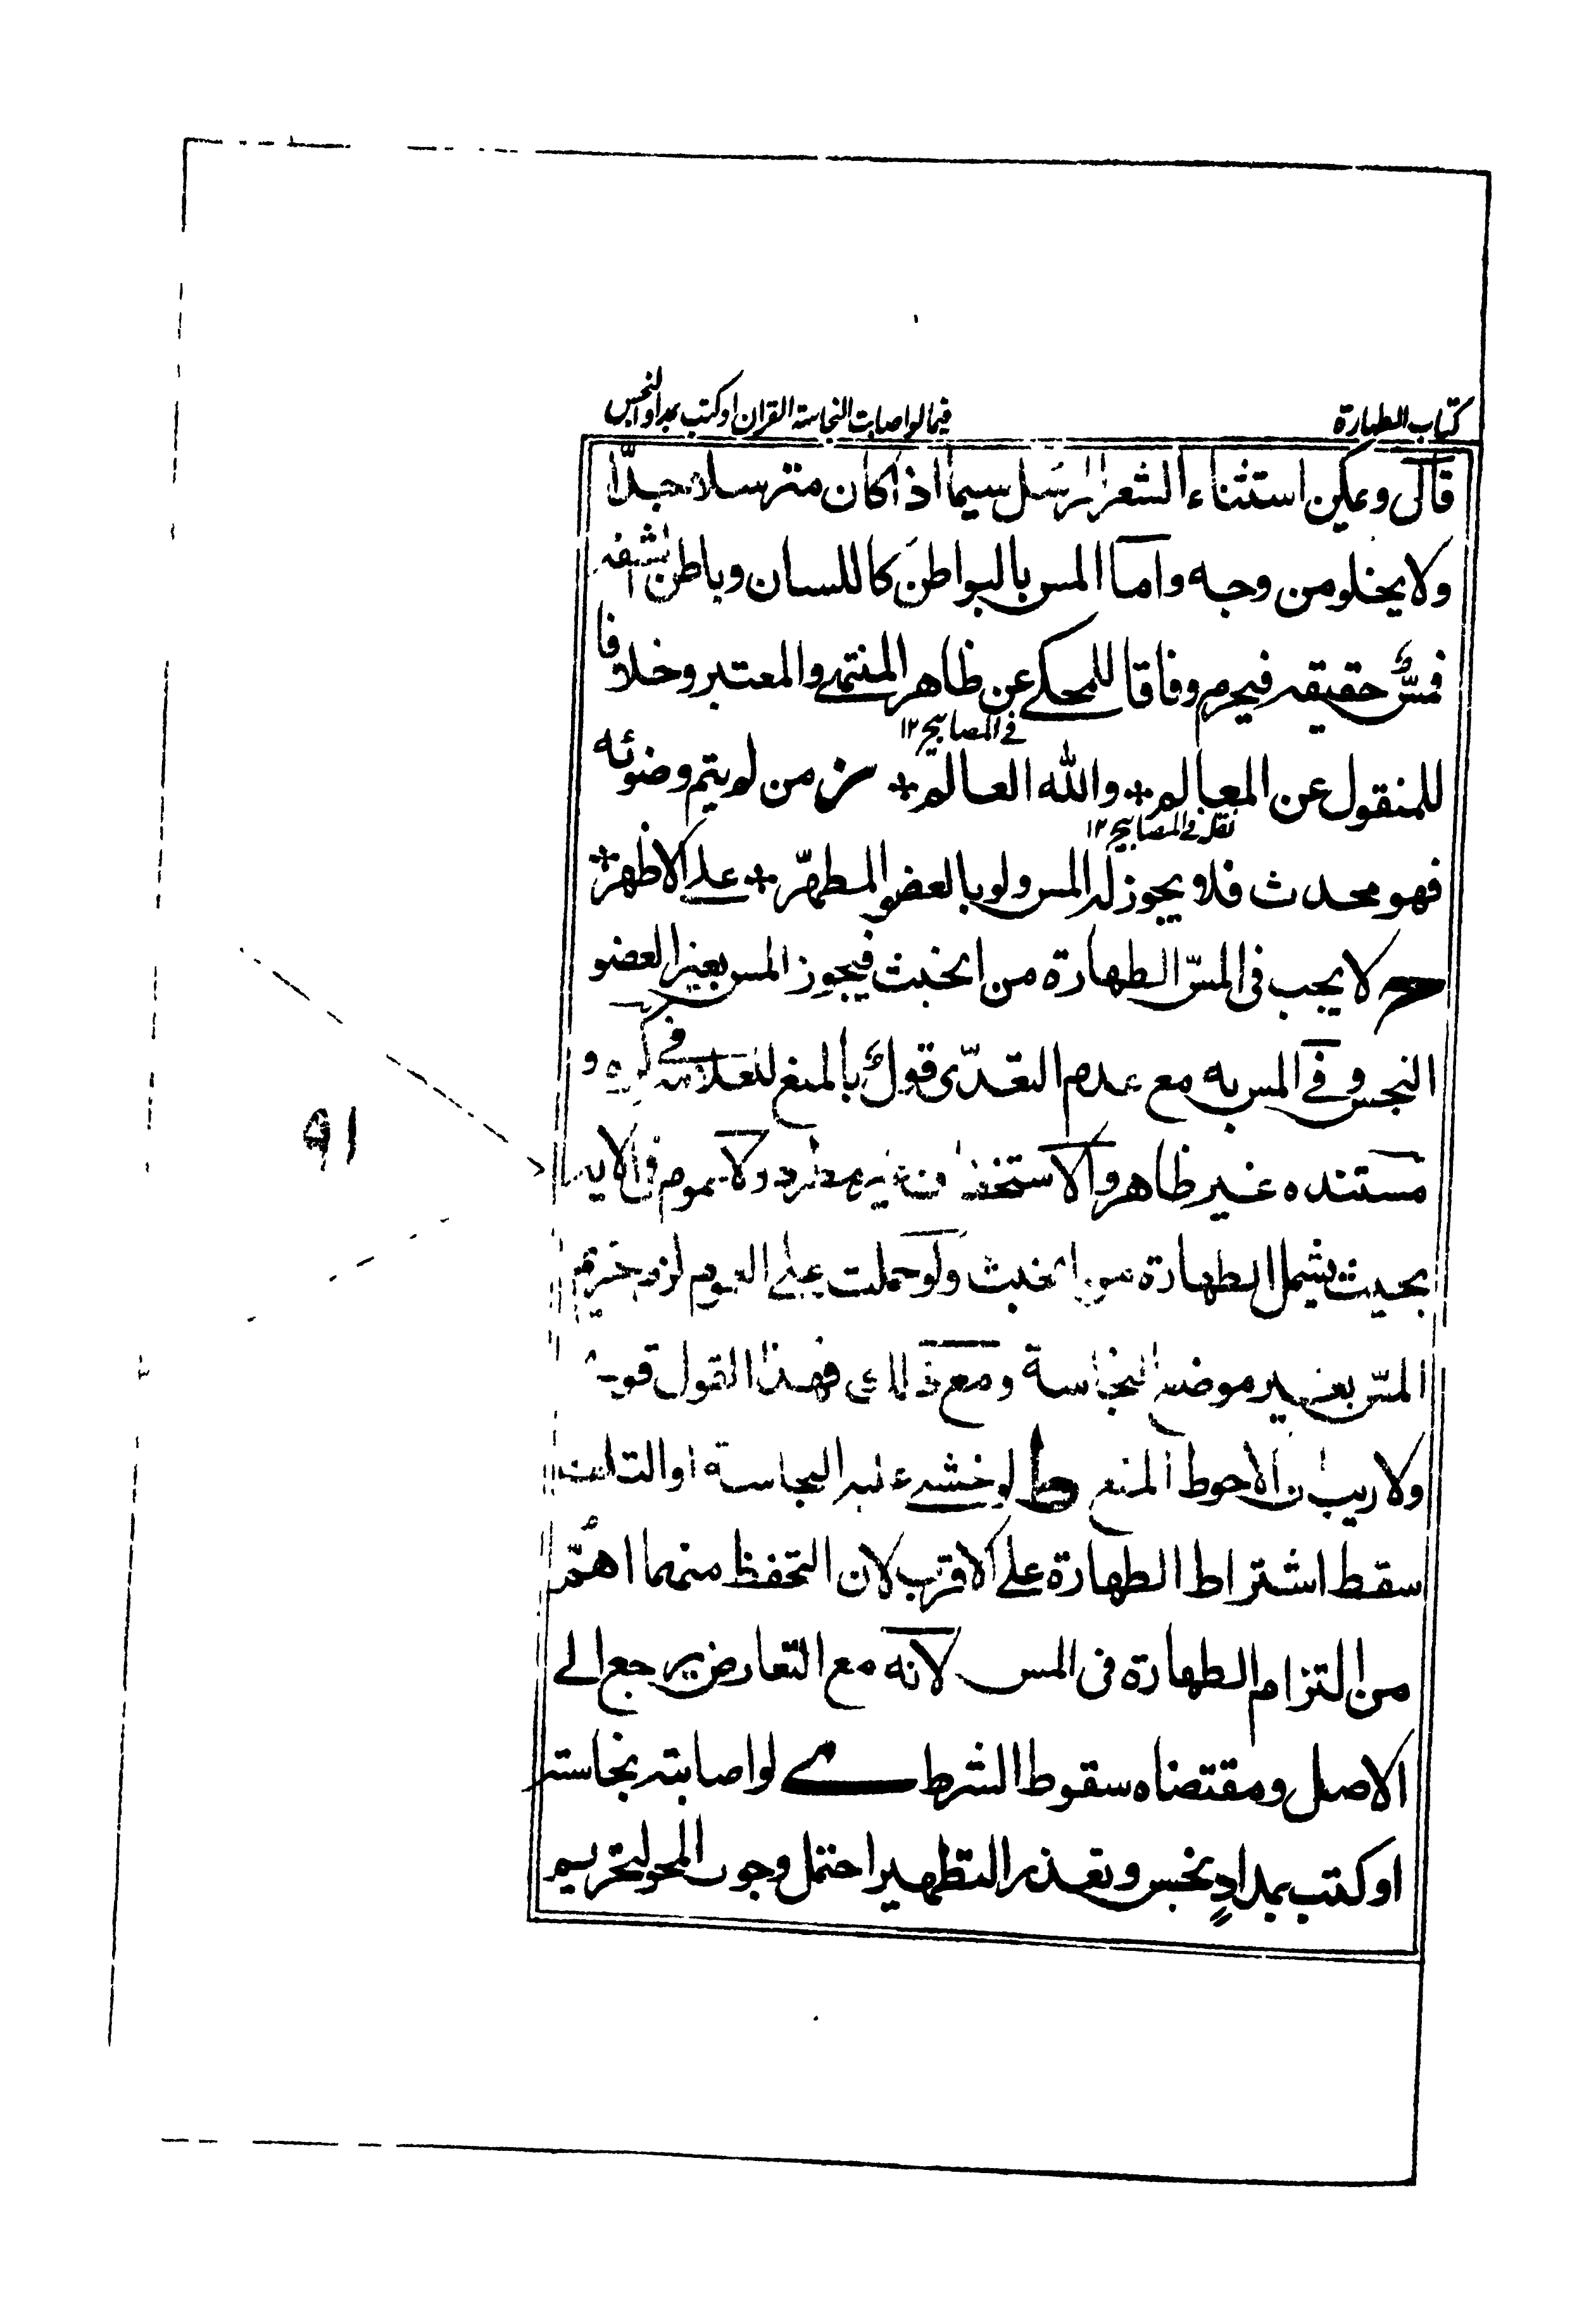 كتاب الطهارة
فيما لو اصابت النجاسة القران او كتب بمداد النجس
قال ويمكن استثناء الشعر المرسل سيما اذا كان مترسلا جدّا
ولا يخلو من وجه واما المس بالبواطن كاللسان وباطن الشفه
فمسّ حقيقه فيحرم وفاقا للمحكى عن ظاهر المنتهى والمعتبر وخلافا
فى المصابيح ١٢
للمنقول عن المعالم والله العالم ز من لم يتم وضوئه
نقله فى المصابيح ١٢
فهو محدث فلا يجوز له المس ولو بالعضو المطهّر على الاظهر
ح لا يجب فى المسّ الطهارة من الخبث فيجوز المس بغير العضو
النجس و فى المس به مع عدم التعدّى قول بالمنع للعلامه فى و
مستنده غير ظاهر والاستخفاف غير مطرد ولا عموم فى الايه
بحيث يشمل الطهارة من الخبث ولو حملت على العموم لزم تحريم
المسّ بغير موضع النجاسة ومع ذلك فهذا القول قوى
ولا ريب ان الاحوط المنع ط لو خشى عليه النجاسة او التلف
سقط اشتراط الطهارة على الاقرب لان التحفظ منهما اهمّ
من التزام الطهارة فى المس لانه مع التعارض يرجع الى
الاصل ومقتضاه سقوط الشرط ى لو اصابته نجاسته
او كتب بمدادٍ نجس وتعذر التطهير احتمل وجوب المحو لتحريم
٩١